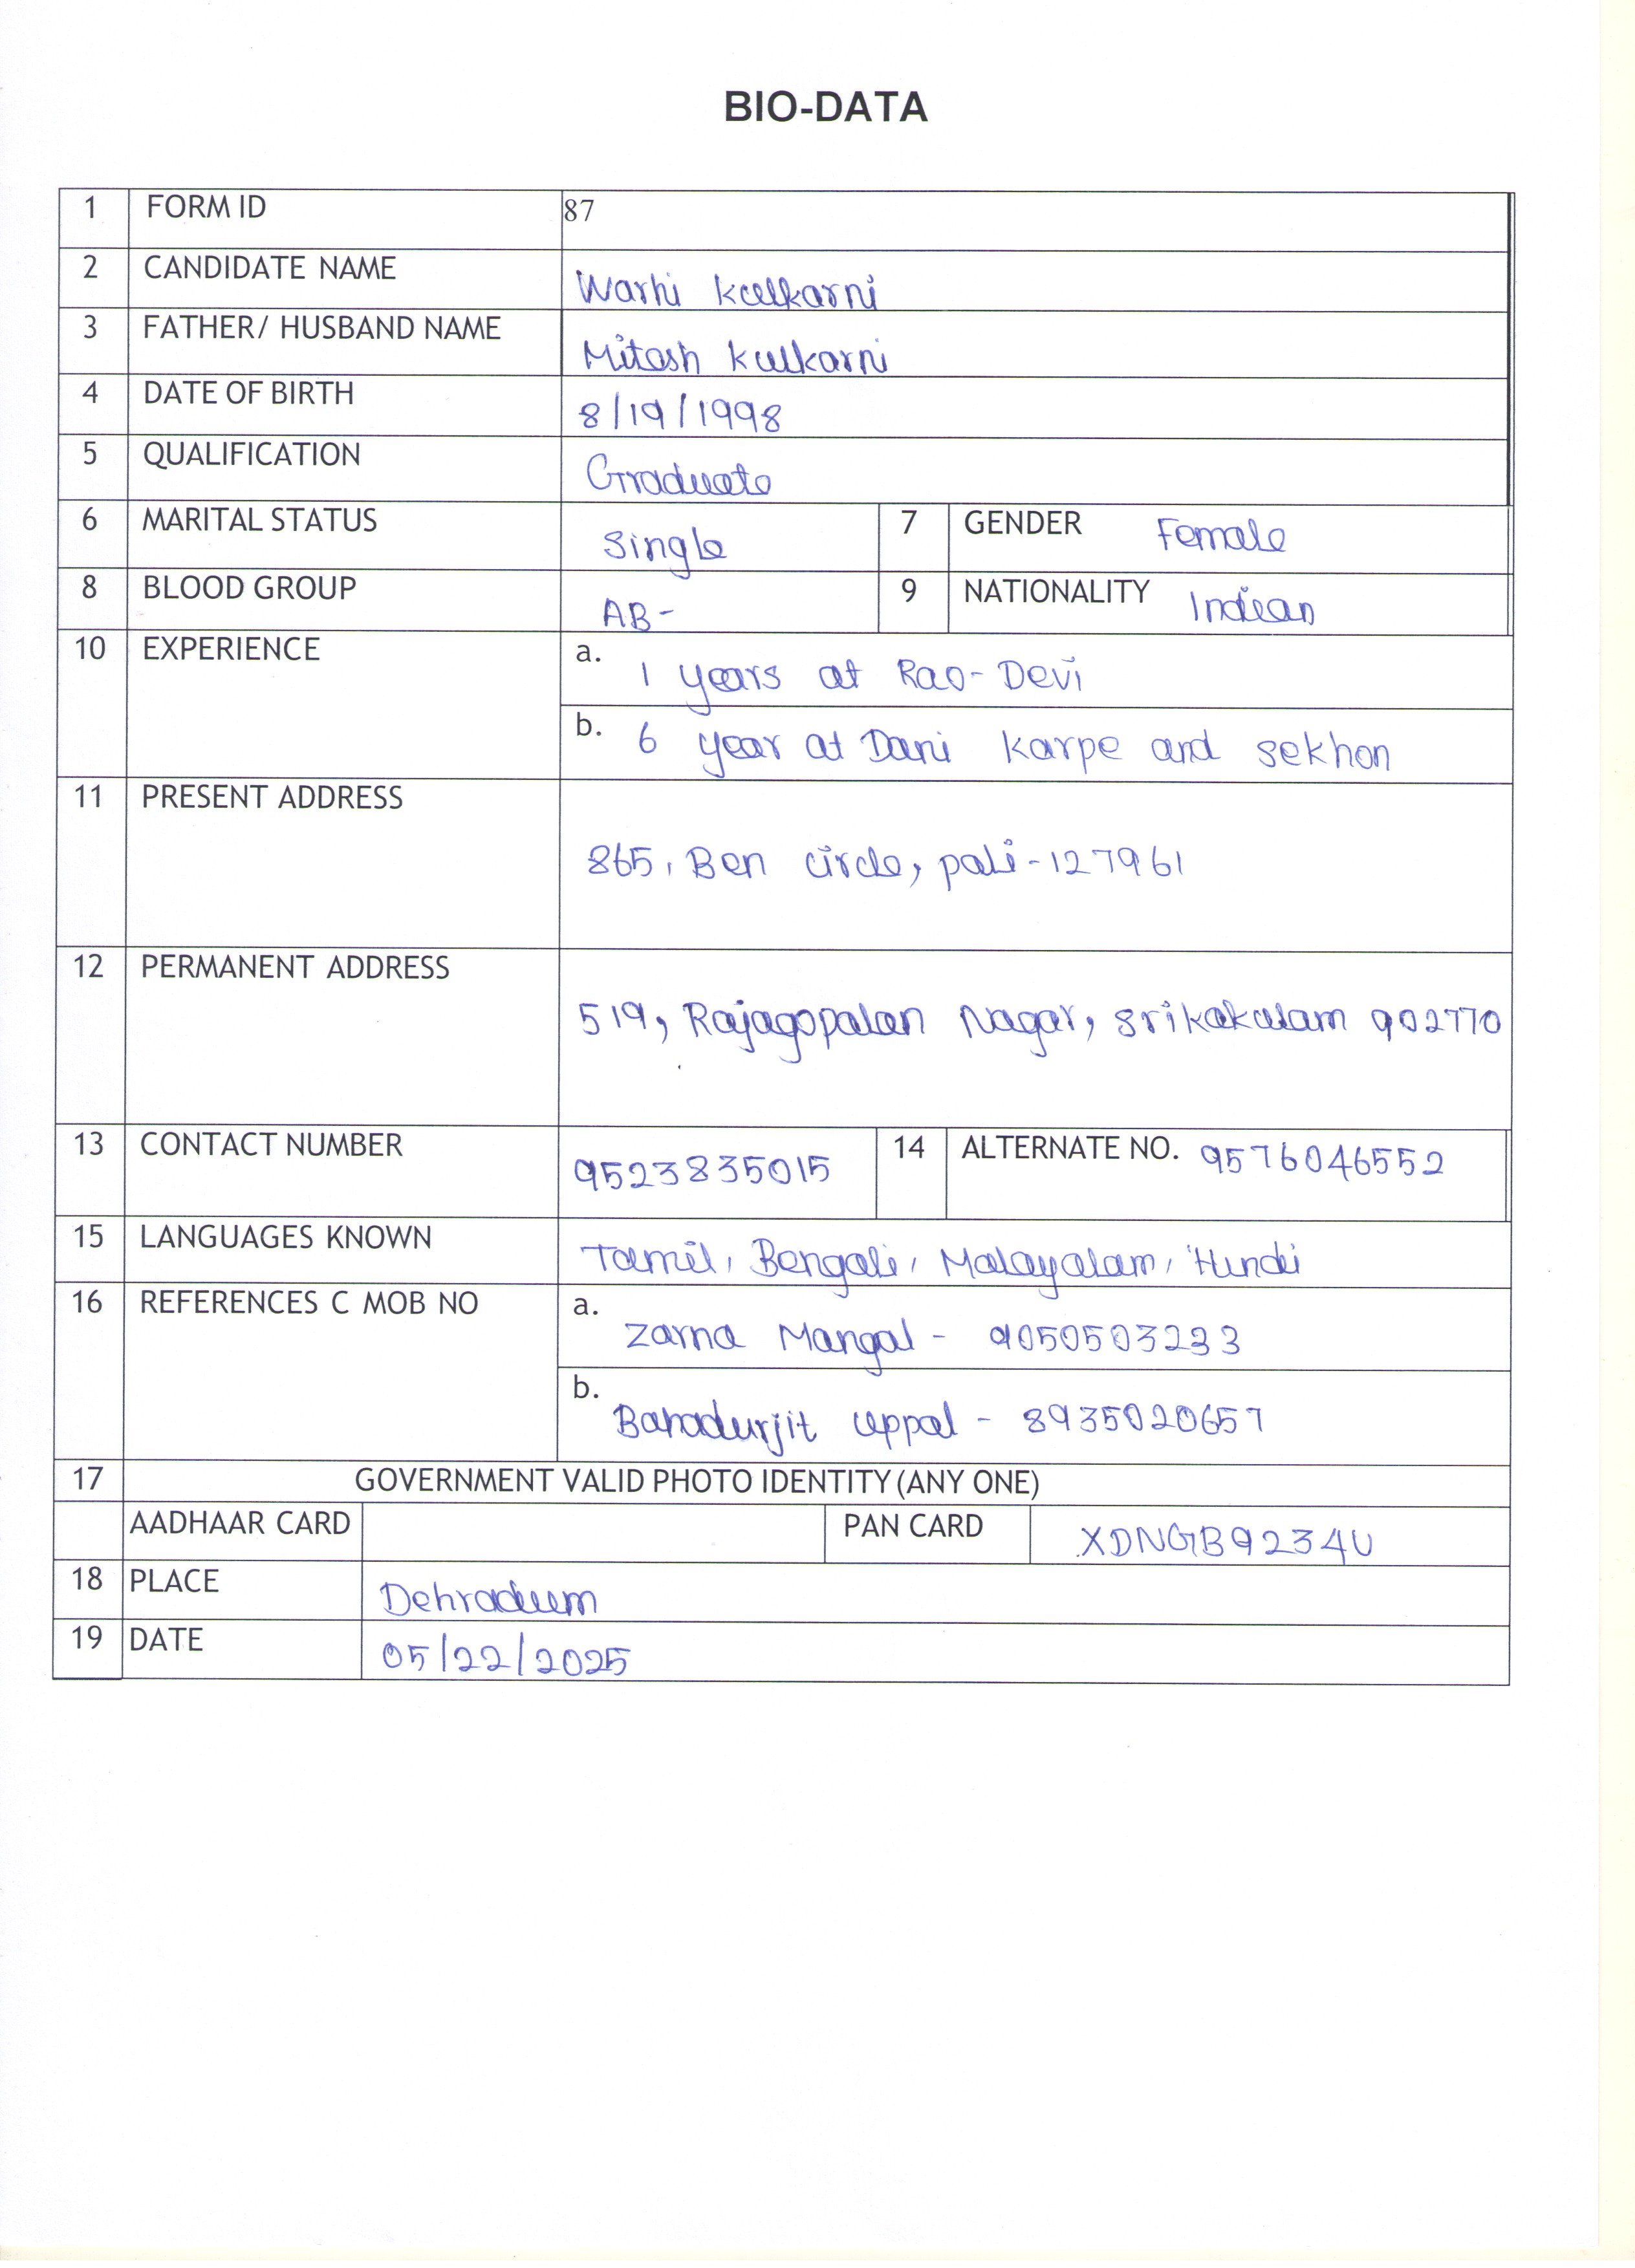 BIO-DATA
1 FORM ID 87
2 CANDIDATE NAME Warhi Kulkarni
3 FATHER/ HUSBAND NAME Mitesh Kulkarni
4 DATE OF BIRTH 8/19/1998
5 QUALIFICATION Graduate
6 MARITAL STATUS Single 7 GENDER Female
8 BLOOD GROUP AB- 9 NATIONALITY Indian
10 EXPERIENCE a. 1 years at Rao-Devi
b. 6 year at Dani Karpe and sekhon
11 PRESENT ADDRESS
865, Ben circle, pali-127961
12 PERMANENT ADDRESS
519, Rajagopalan Nagar, Srikakulam 902770
13 CONTACT NUMBER 9523835015 14 ALTERNATE NO. 9576046552
15 LANGUAGES KNOWN Tamil, Bengali, Malayalam, Hindi
16 REFERENCES C MOB NO a. Zarna Mangal - 9050503233
b. Bahadurjit Uppal - 8935020657
17 GOVERNMENT VALID PHOTO IDENTITY (ANY ONE)
AADHAAR CARD PAN CARD XDNGB9234U
18 PLACE Dehradum
19 DATE 05/22/2025